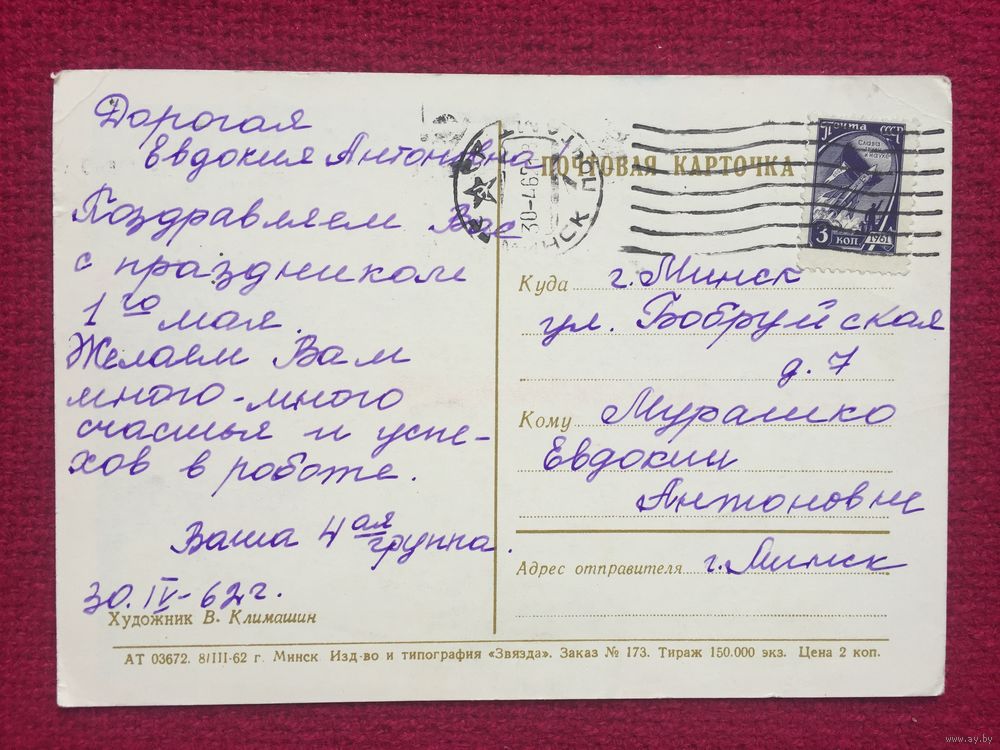 Дорогая
Евдокия Антоновна!
Поздравляем Вас
с праздником
1го мая.
Желаем Вам
много-много
счастья и успе-
хов в работе.
Ваша 4ая группа.
30.IV-62 г.
Художник В. Климашин
ПОЧТОВАЯ КАРТОЧКА
МИНСК
30-4 62
Почта СССР
Слава
науке
3 коп
1961
Куда г. Минск
ул. Бобруйская
д. 7
Кому Мурашко
Евдокии
Антоновне
Адрес отправителя г. Минск
АТ 03672. 8/III-62 г. Минск Изд-во и типография «Звязда». Заказ № 173. Тираж 150.000 экз. Цена 2 коп.
www.ay.by